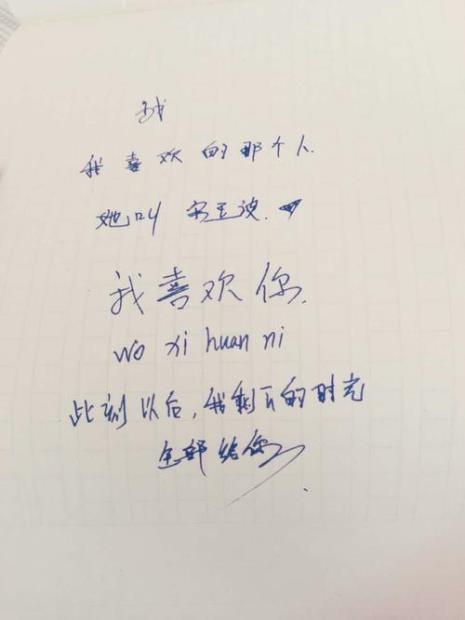 我
我喜欢的那个人.
她叫 宋玉波.
我喜欢你.
wo xi huan ni
此刻以后,我剩下的时光
全部给你